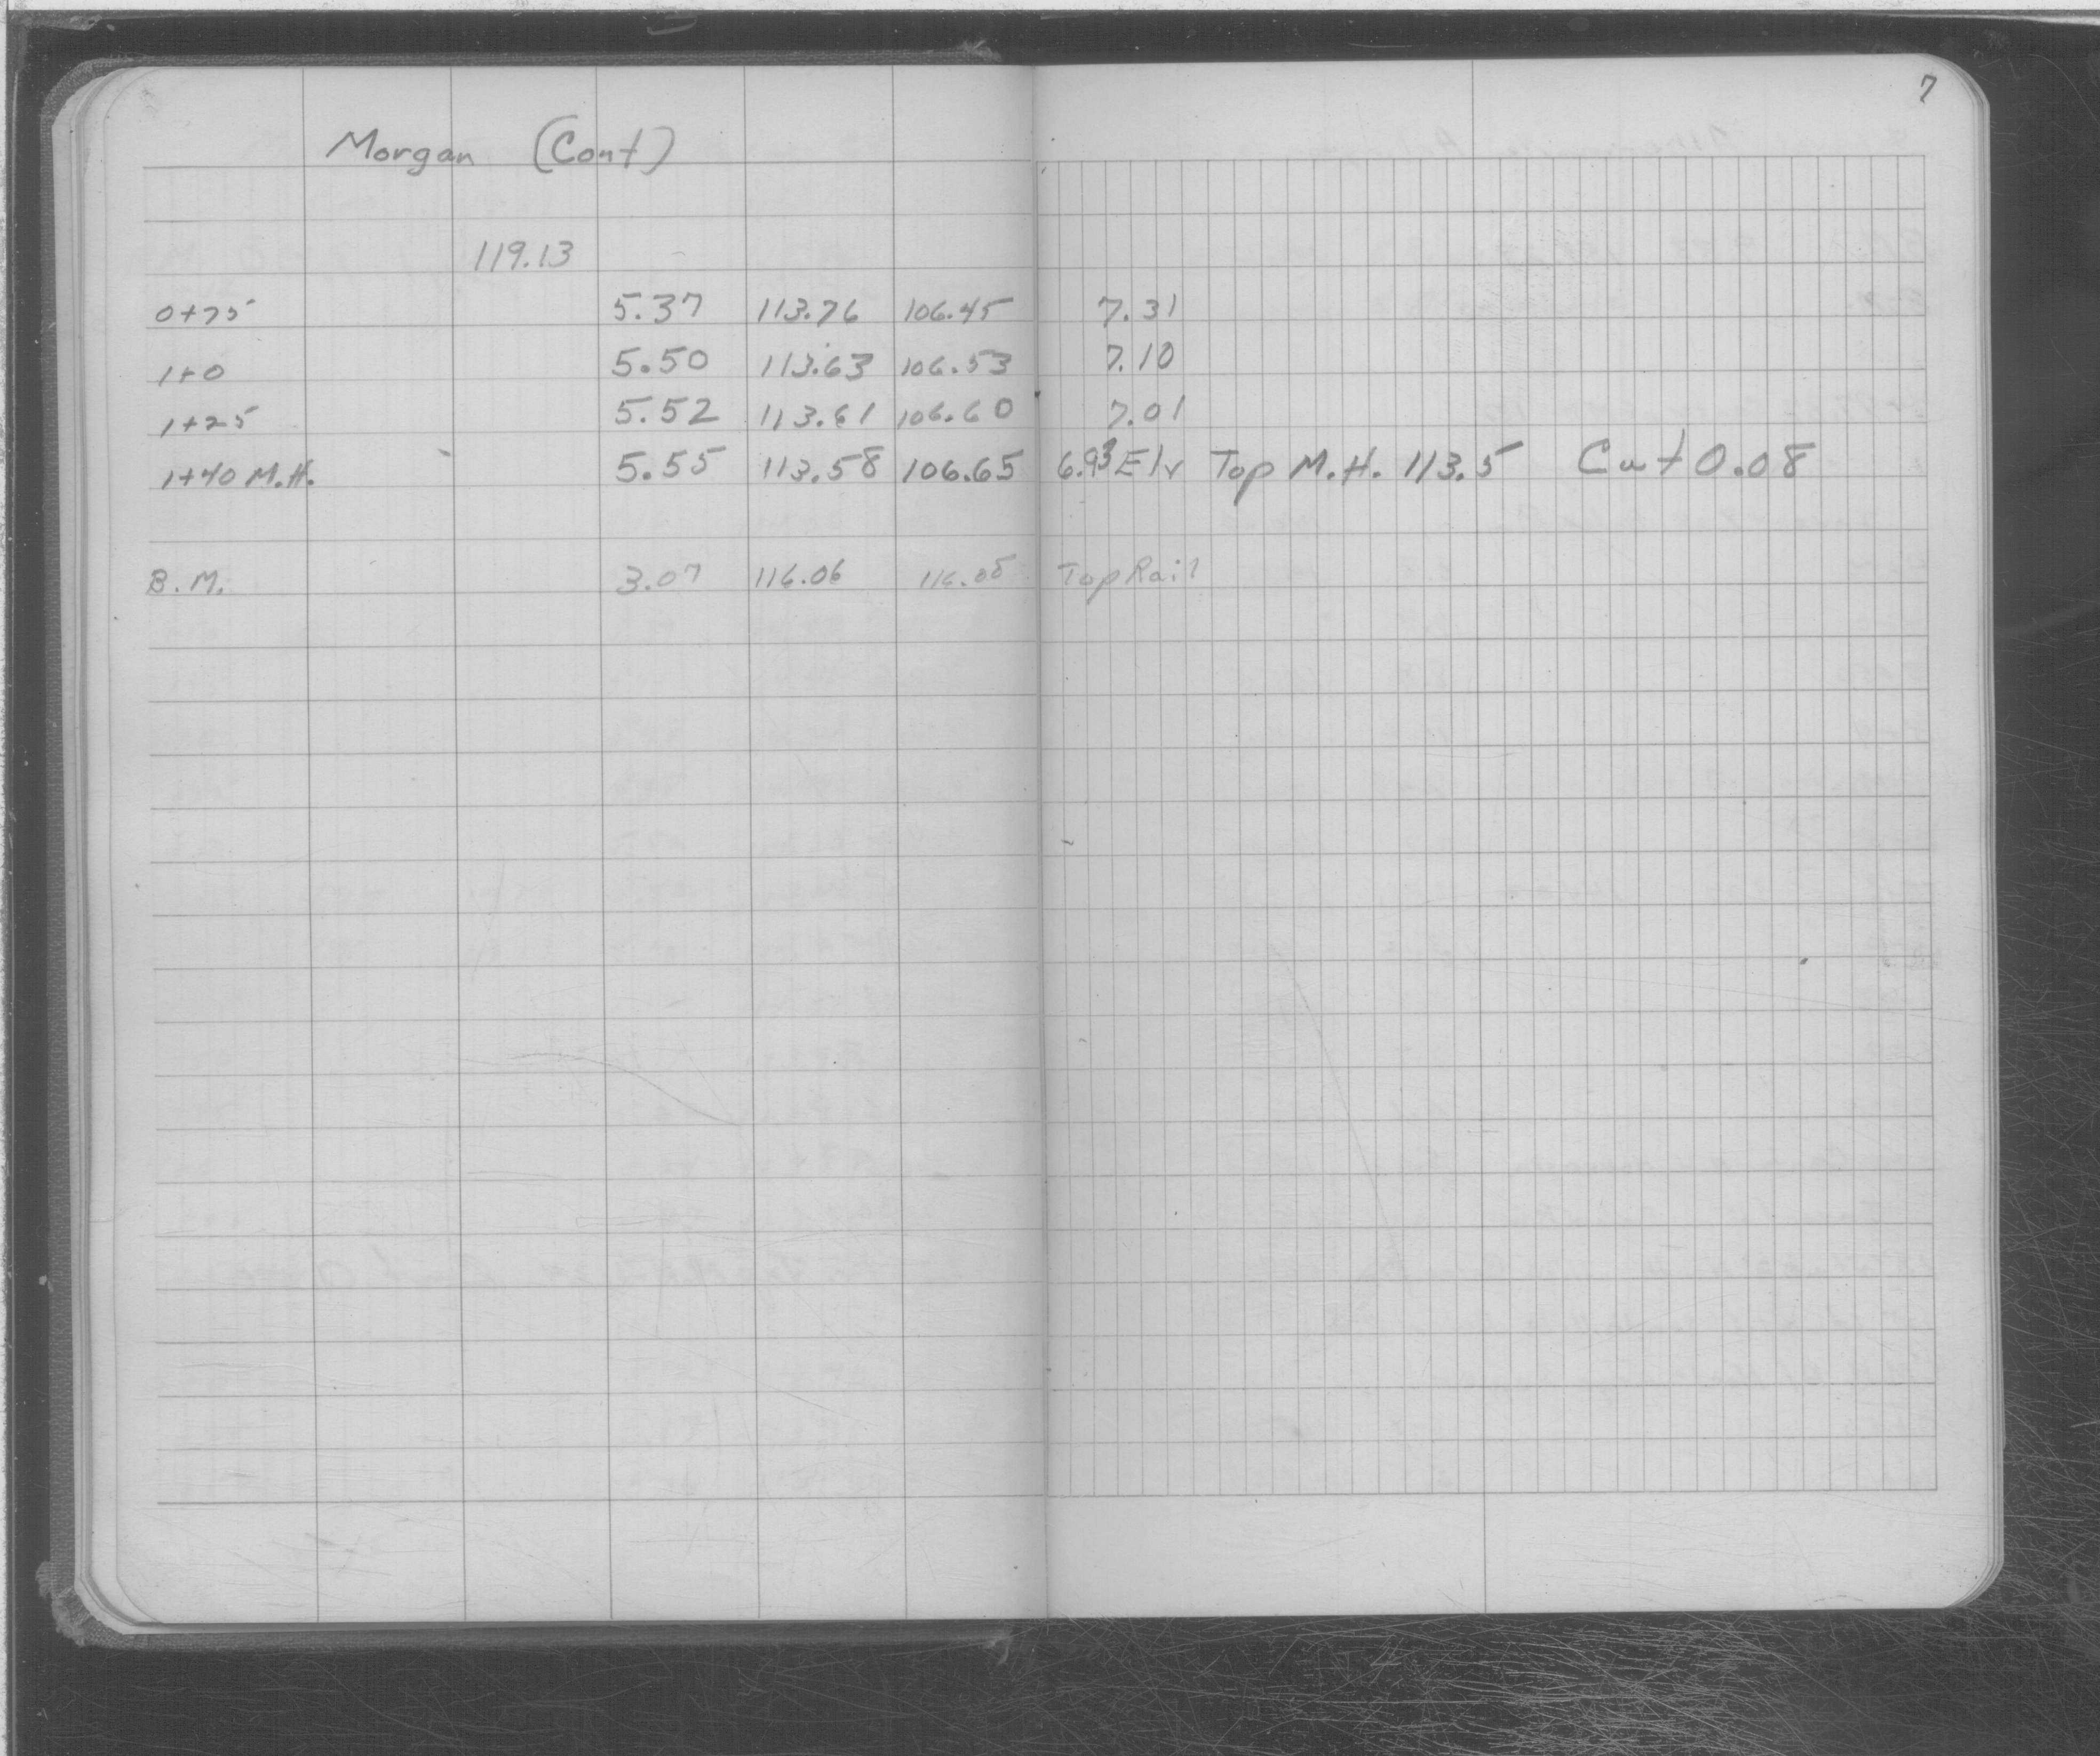 7
Morgan (Cont)
119.13
0+75 5.37 113.76 106.45 7.31
1+0 5.50 113.63 106.53 7.10
1+25 5.52 113.61 106.60 7.01
1+40 M.H. 5.55 113.58 106.65 6.93 Elv Top M.H. 113.5 Cut 0.08
B.M. 3.07 116.06 Top Rail